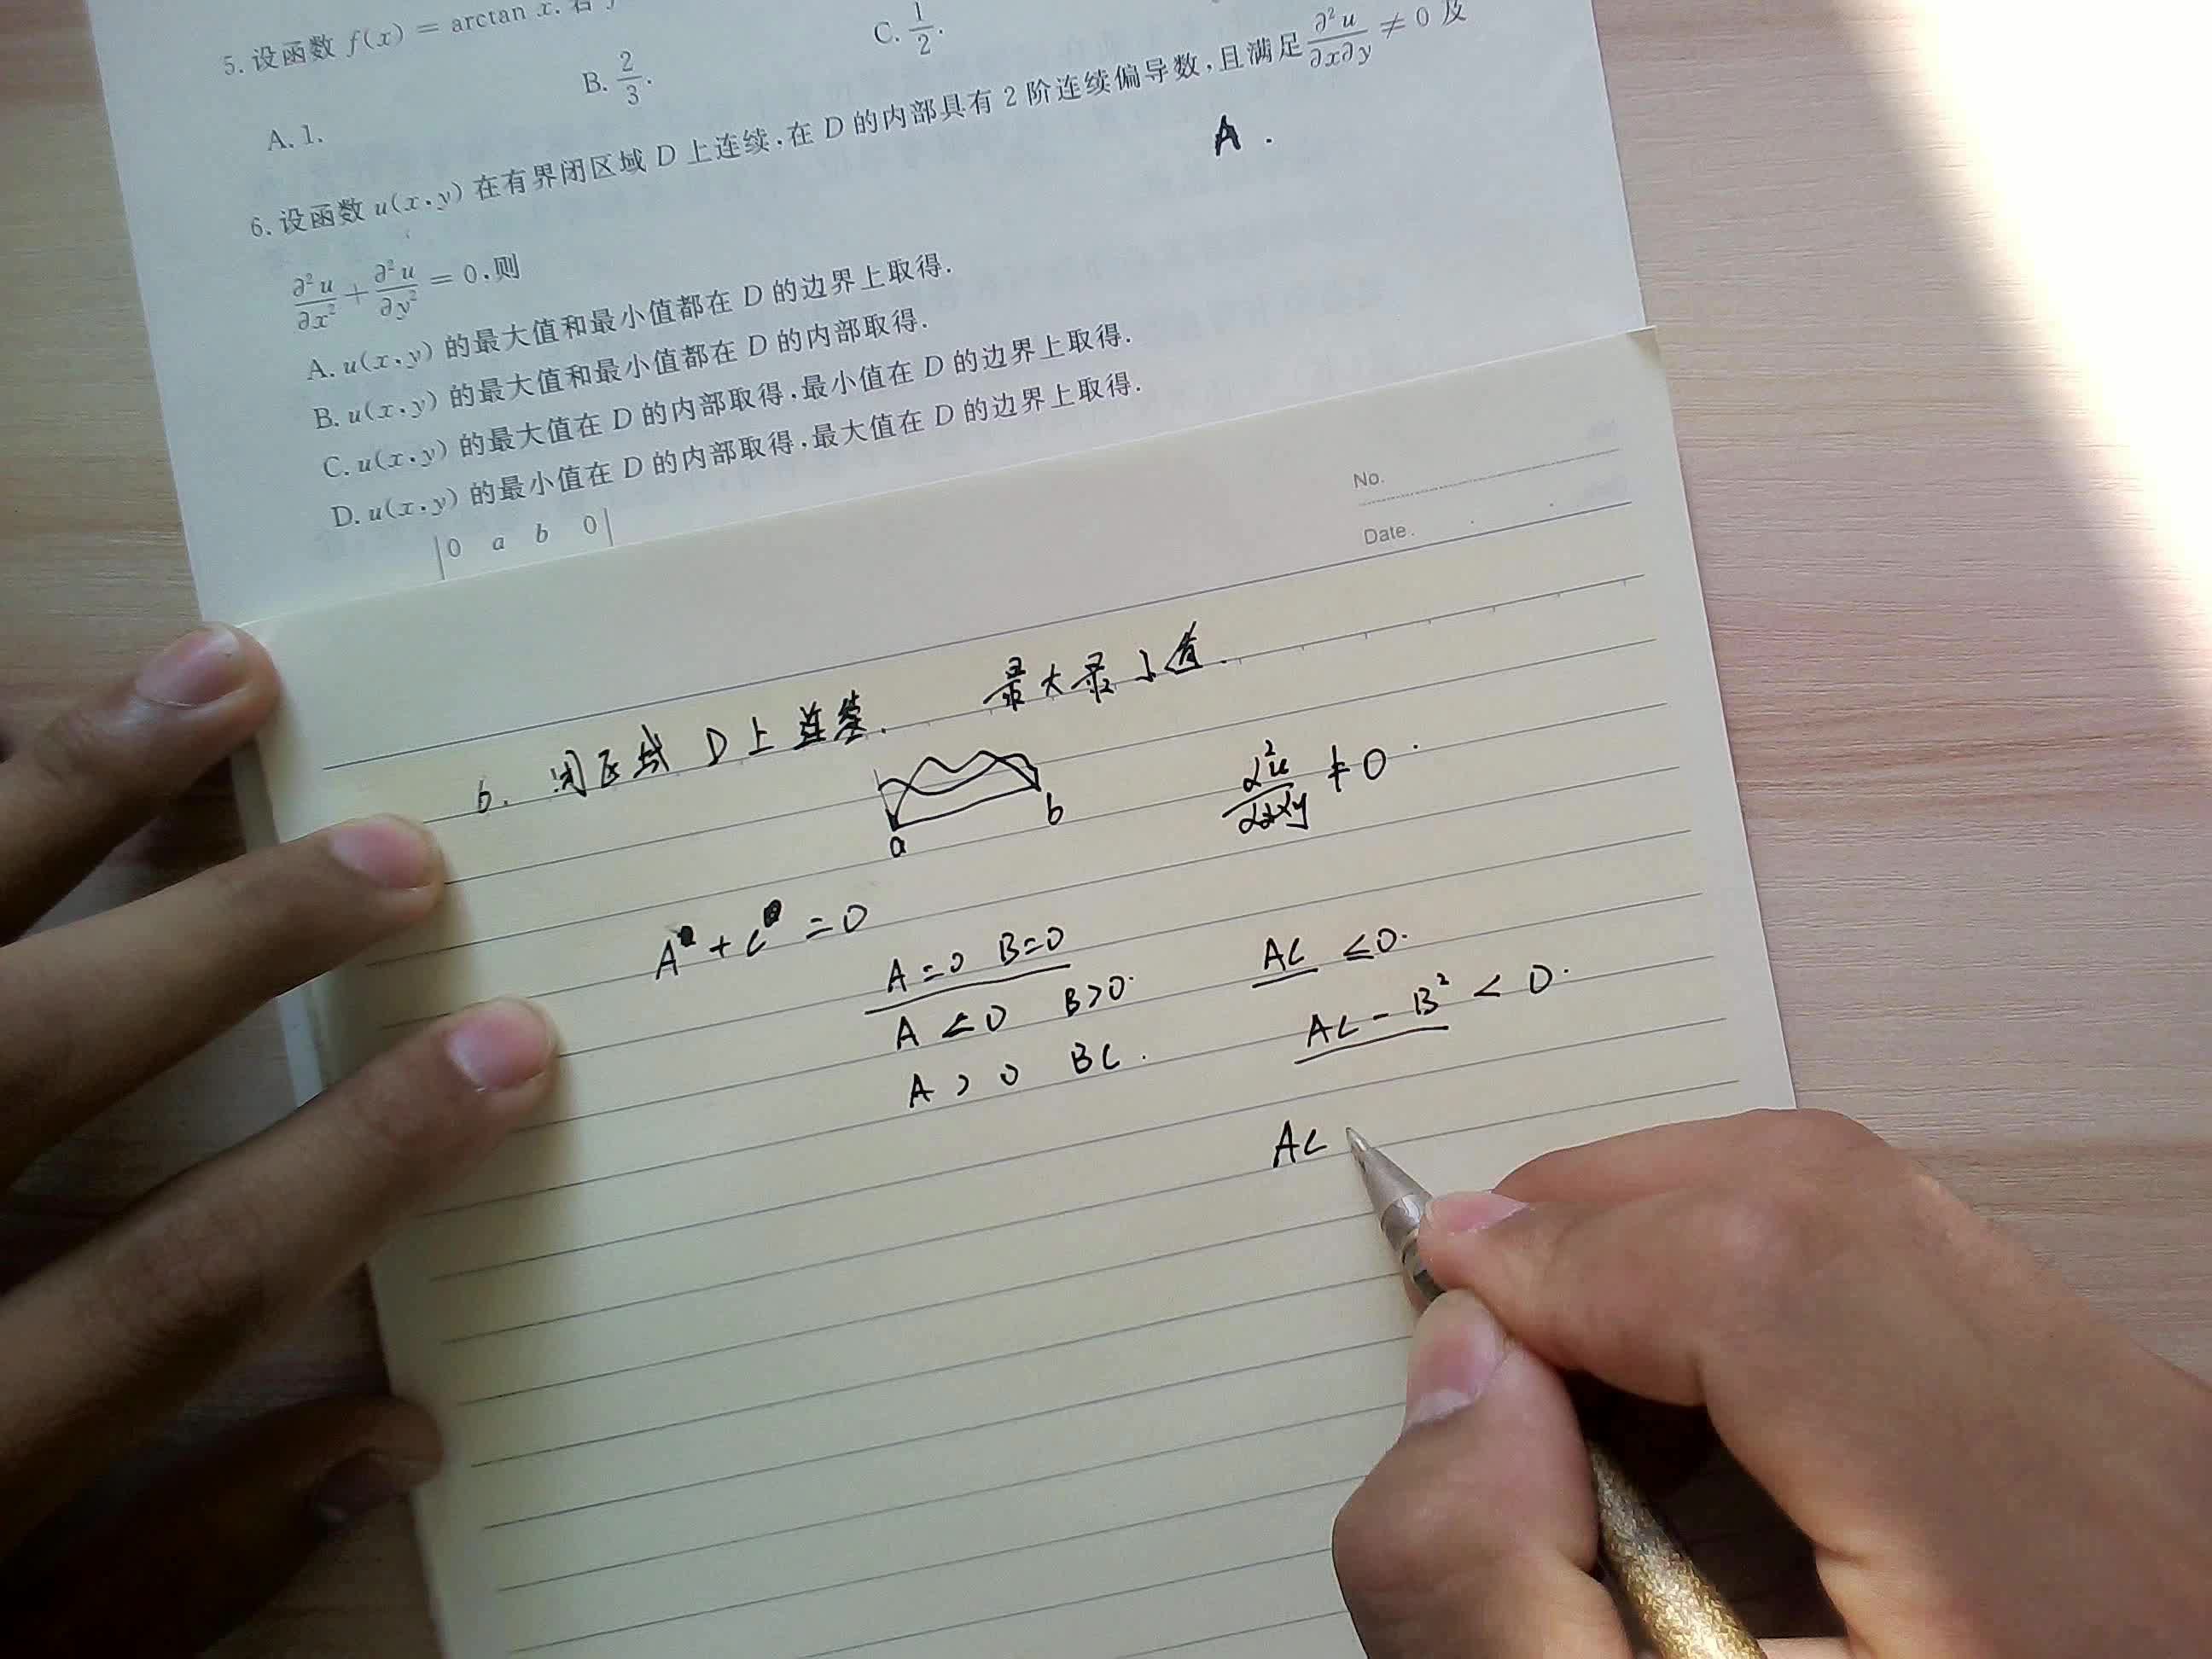 5. 设函数 f(x) = arctan x. 若
A. 1. B. 2/3. C. 1/2.
6. 设函数 u(x,y) 在有界闭区域 D 上连续,在 D 的内部具有 2 阶连续偏导数,且满足 ∂²u/∂x∂y ≠ 0 及
A .
∂²u/∂x² + ∂²u/∂y² = 0,则
A. u(x,y) 的最大值和最小值都在 D 的边界上取得.
B. u(x,y) 的最大值和最小值都在 D 的内部取得.
C. u(x,y) 的最大值在 D 的内部取得,最小值在 D 的边界上取得.
D. u(x,y) 的最小值在 D 的内部取得,最大值在 D 的边界上取得.
|0 a b 0|
No.
Date .
6. 闭区域 D上连续. 最大最小值.
a b
≠ 0 .
A + C = 0
A=0 B=0 AC ≤0.
A <0 B>0. AC - B² < 0.
A > 0 BC .
AC